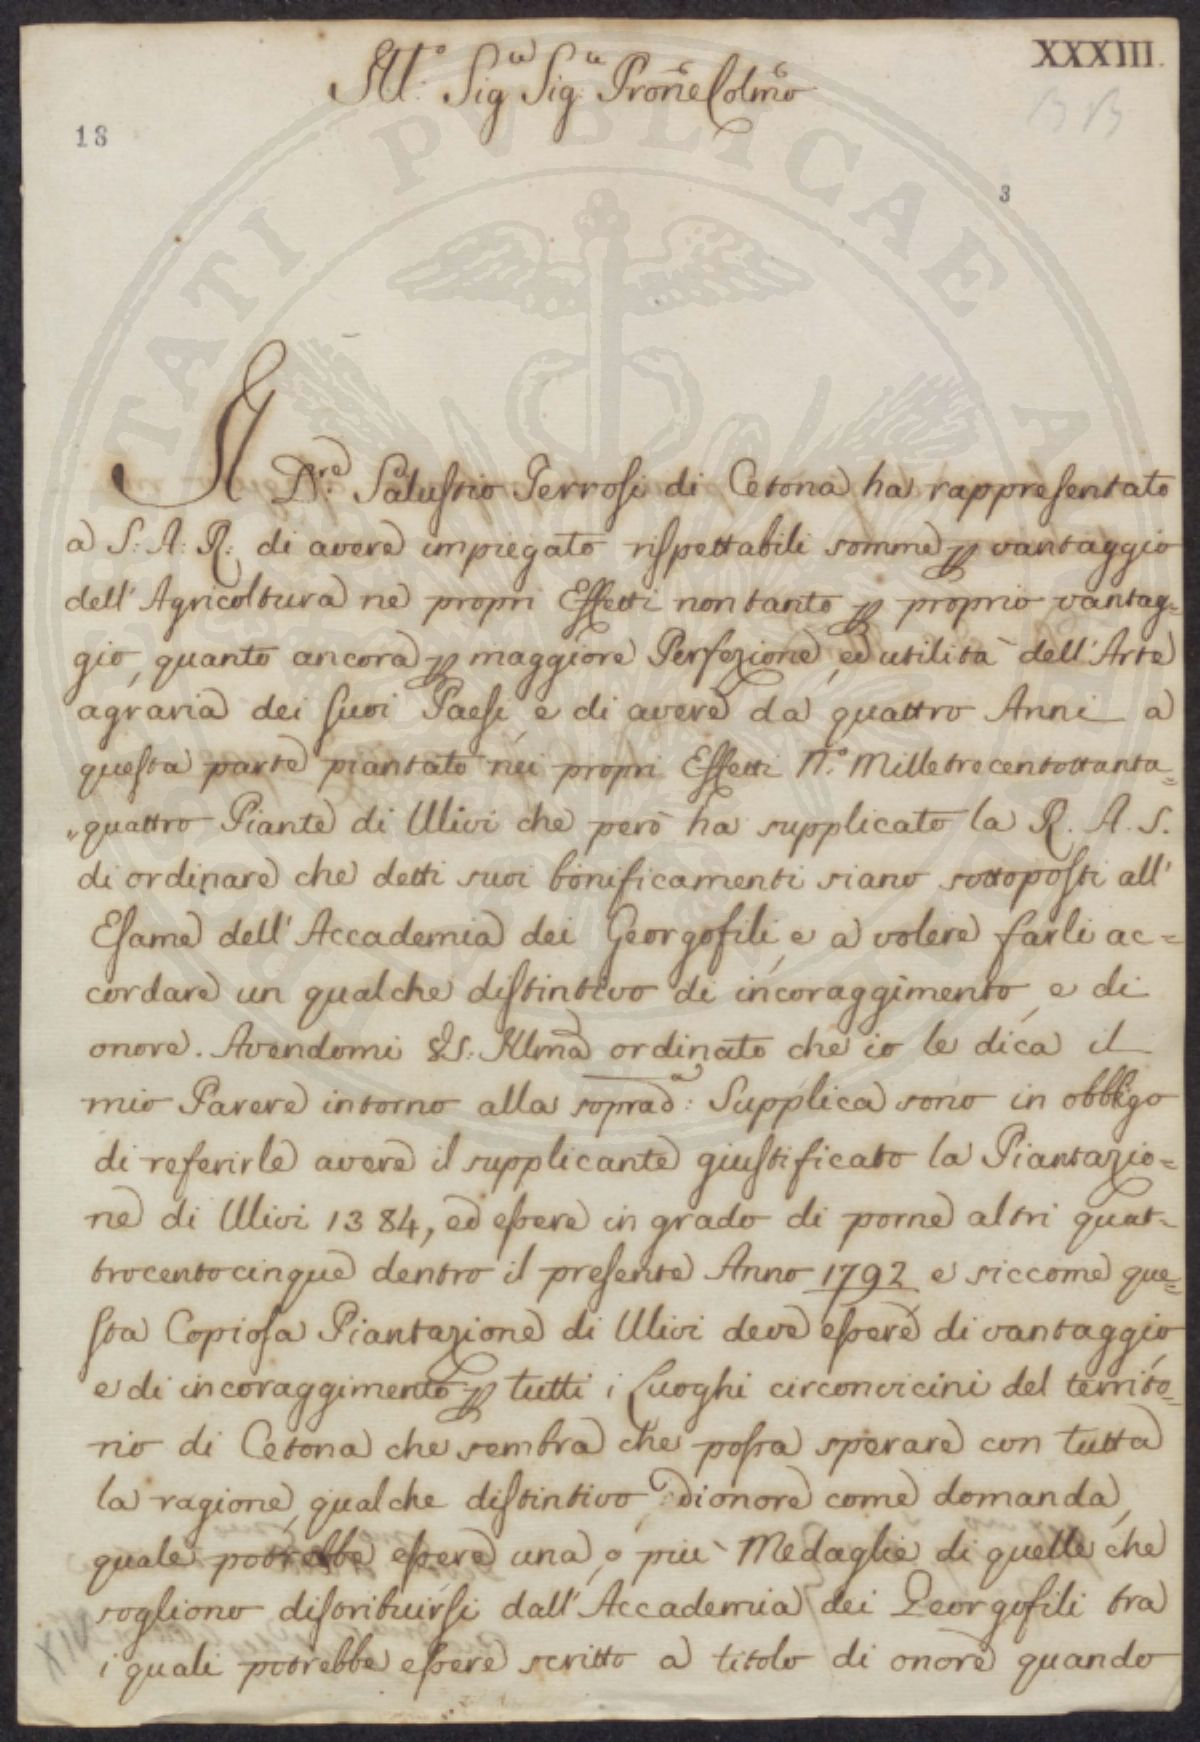 XXXIII.
Ill.º Sig.ʳᵉ Sig.ʳᵉ Prone Colmo
18
3
PUBLICAE
Il D.ʳᵉ Salustio Terrosi di Cetona ha rappresentato
a S: A: R: di avere impiegato rispettabili somme p vantaggio
dell'Agricoltura ne propri Effetti non tanto p proprio vantag=
gio, quanto ancora p maggiore Perfezione, ed utilità dell'Arte
agraria dei suoi Paesi, e di avere da quattro Anni a
questa parte piantato nei propri Effetti N.º Milletrecentottanta=
"quattro Piante di Ulivi che però ha supplicato la R. A. S.
di ordinare che detti suoi bonificamenti siano sottoposti all'
Esame dell'Accademia dei Georgofili, e a volere farli ac=
cordare un qualche distintivo di incoraggimento, e di
onore. Avendomi VS: Illma ordinato che io le dica il
mio Parere intorno alla soprad:ᵃ Supplica sono in obbligo
di referirle avere il supplicante giustificato la Piantazio=
ne di Ulivi 1384, ed essere in grado di porne altri quat=
trocentocinque dentro il presente Anno 1792 e siccome que=
sta Copiosa Piantazione di Ulivi deve essere di vantaggio,
e di incoraggimento p tutti i Luoghi circonvicini del territo=
rio di Cetona che sembra che possa sperare con tutta
la ragione, qualche distintivo, di onore come domanda,
quale potrebbe essere una, o più Medaglie di quelle che
sogliono distribuirsi dall'Accademia dei Georgofili tra
i quali potrebbe essere scritto a titolo di onore quando